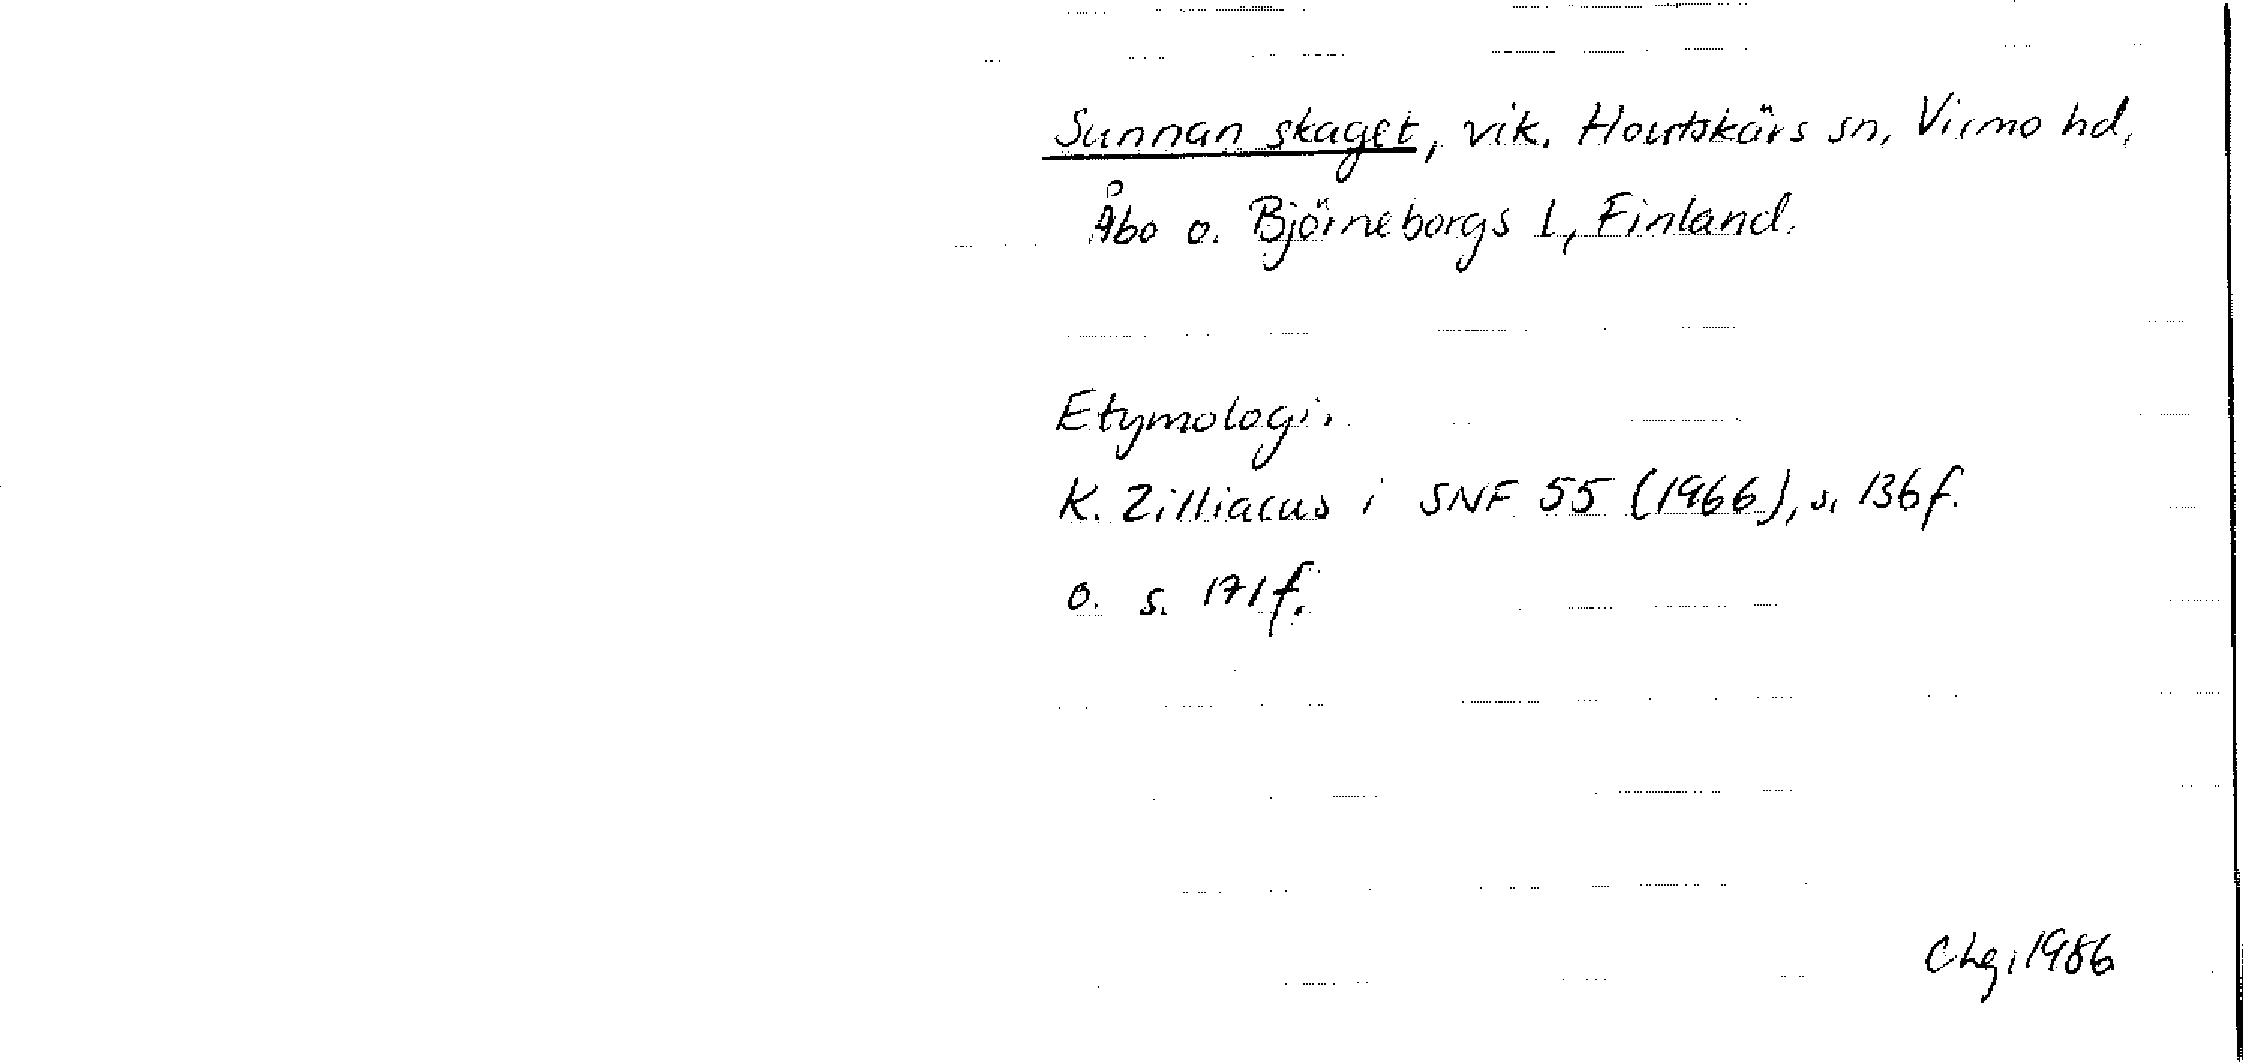 Sunnan skaget, vik. Houtskärs sn, Virmo hd,
Åbo o. Björneborgs l, Finland.
Etymologi.
K. Zilliacus i SNF 55 (1966), s. 136f.
o. s. 171f.
CLg, 1986